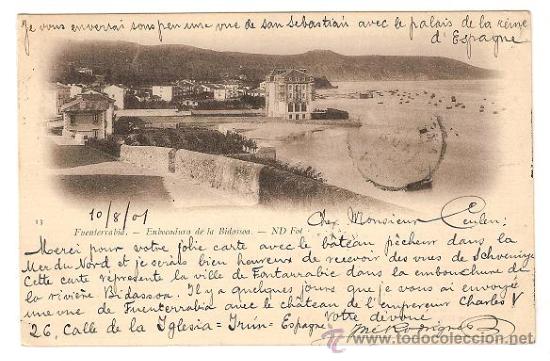 Je vous enverrai sous peu une vue de San Sebastián avec le palais de la reine
d'Espagne
13
10/8/01
Fuenterrabia. — Enbocadura de la Bidassoa. — ND Fot
Cher Monsieur
Merci pour votre jolie carte avec le bâteau pêcheur dans la
Mer du Nord et je serais bien heureux de recevoir des vues de
Cette carte réprésente la ville de Fontarrabie dans la embouchure de
la rivière Bidassoa. Il y a quelques jours que je vous ai envoyée
une vue de Fuenterrabia avec le château de l'empereur Charles V
Votre dévoué
26, Calle de la Iglesia = Irún = Espagne
todocoleccion.net